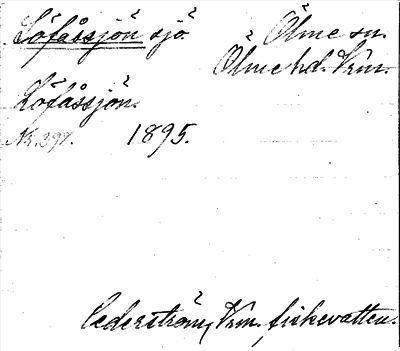 Löfåssjön sjö Ölme sn.
Ölme hd. Vrm.
Löfåssjön.
1895.
Cederström, Vrm. fiskevatten.